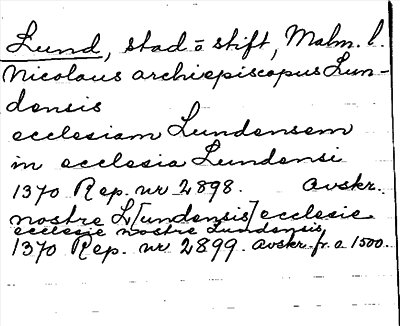 Lund, stad o stift, Malm. l.
Nicolaus archiepiscopus Lun-
densis
ecclesiam Lundensem
in ecclesia Lundensi
1370 Rep. nr 2898. Avskr.
nostre L[undensis] ecclesie
ecclesie nostre Lundensis
1370 Rep. nr 2899. Avskr. fr. o 1500.